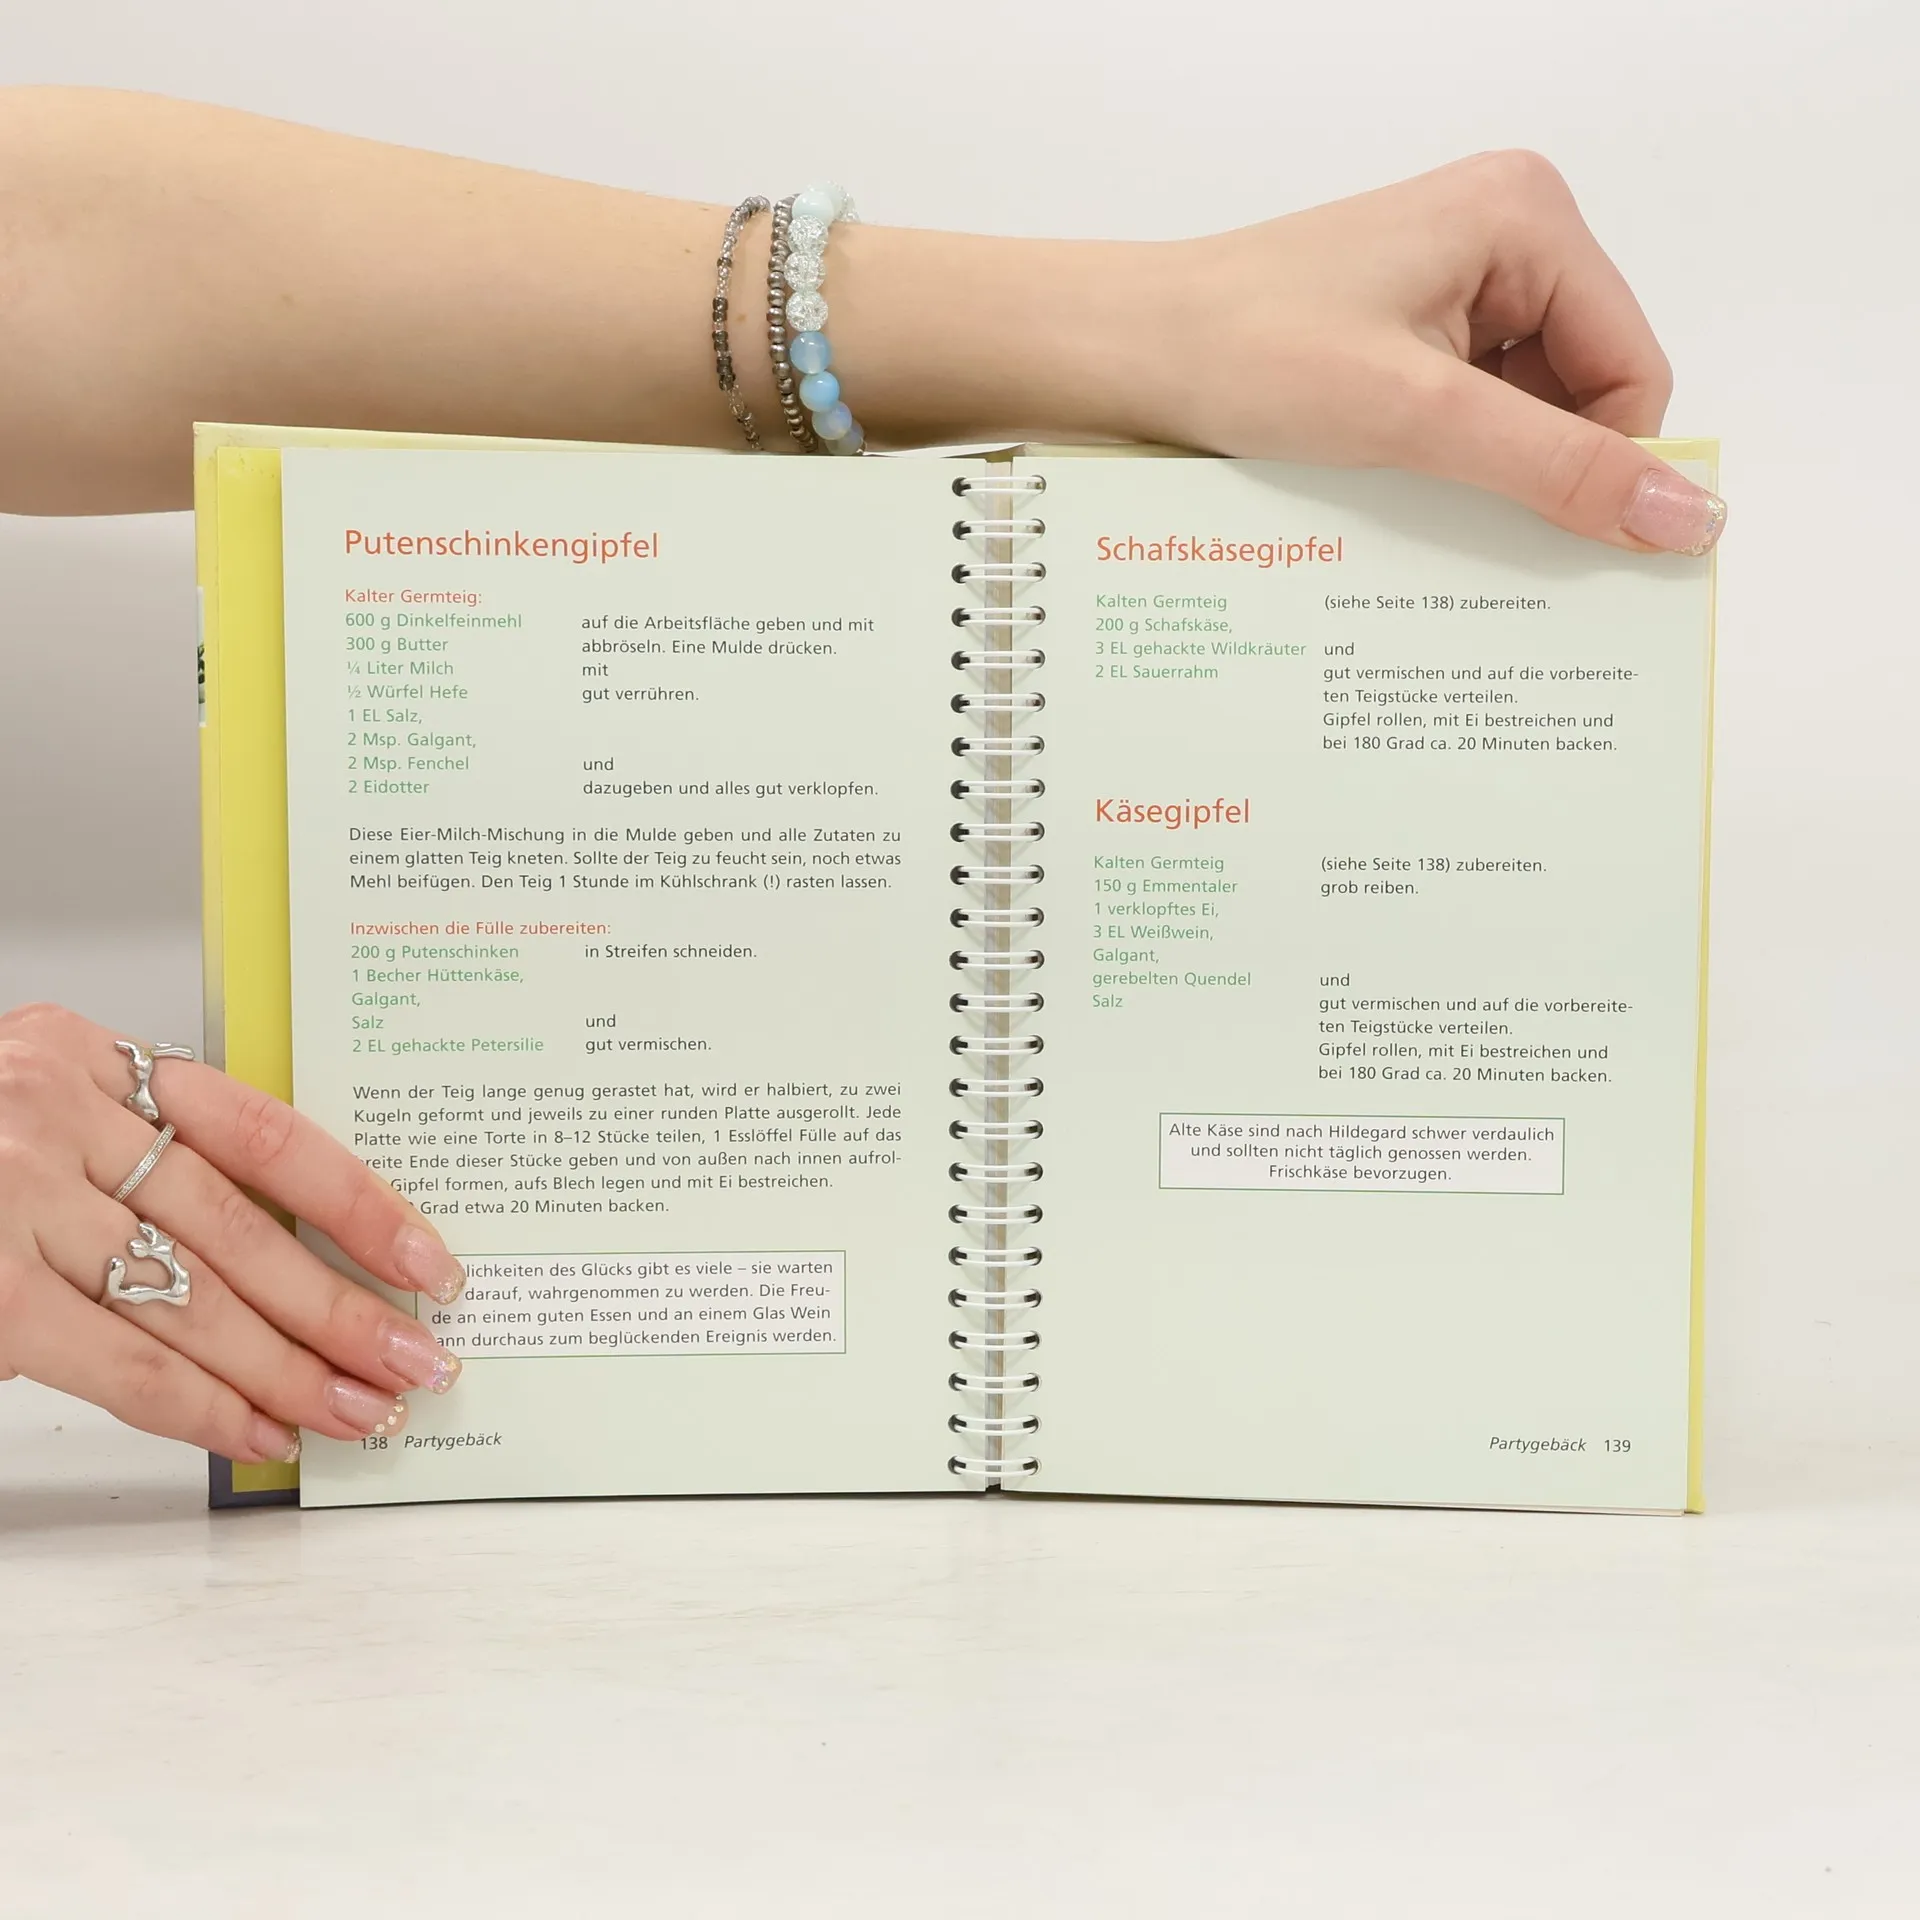 Putenschinkengipfel
Kalter Germteig:
600 g Dinkelfeinmehl auf die Arbeitsfläche geben und mit
300 g Butter abbröseln. Eine Mulde drücken.
¼ Liter Milch mit
½ Würfel Hefe gut verrühren.
1 EL Salz,
2 Msp. Galgant,
2 Msp. Fenchel und
2 Eidotter dazugeben und alles gut verklopfen.
Diese Eier-Milch-Mischung in die Mulde geben und alle Zutaten zu
einem glatten Teig kneten. Sollte der Teig zu feucht sein, noch etwas
Mehl beifügen. Den Teig 1 Stunde im Kühlschrank (!) rasten lassen.
Inzwischen die Fülle zubereiten:
200 g Putenschinken in Streifen schneiden.
1 Becher Hüttenkäse,
Galgant,
Salz und
2 EL gehackte Petersilie gut vermischen.
Wenn der Teig lange genug gerastet hat, wird er halbiert, zu zwei
Kugeln geformt und jeweils zu einer runden Platte ausgerollt. Jede
Platte wie eine Torte in 8–12 Stücke teilen, 1 Esslöffel Fülle auf das
breite Ende dieser Stücke geben und von außen nach innen aufrol-
Gipfel formen, aufs Blech legen und mit Ei bestreichen.
Grad etwa 20 Minuten backen.
lichkeiten des Glücks gibt es viele – sie warten
darauf, wahrgenommen zu werden. Die Freu-
de an einem guten Essen und an einem Glas Wein
ann durchaus zum beglückenden Ereignis werden.
138 Partygebäck
Schafskäsegipfel
Kalten Germteig (siehe Seite 138) zubereiten.
200 g Schafskäse,
3 EL gehackte Wildkräuter und
2 EL Sauerrahm gut vermischen und auf die vorbereite-
ten Teigstücke verteilen.
Gipfel rollen, mit Ei bestreichen und
bei 180 Grad ca. 20 Minuten backen.
Käsegipfel
Kalten Germteig (siehe Seite 138) zubereiten.
150 g Emmentaler grob reiben.
1 verklopftes Ei,
3 EL Weißwein,
Galgant,
gerebelten Quendel und
Salz gut vermischen und auf die vorbereite-
ten Teigstücke verteilen.
Gipfel rollen, mit Ei bestreichen und
bei 180 Grad ca. 20 Minuten backen.
Alte Käse sind nach Hildegard schwer verdaulich
und sollten nicht täglich genossen werden.
Frischkäse bevorzugen.
Partygebäck 139